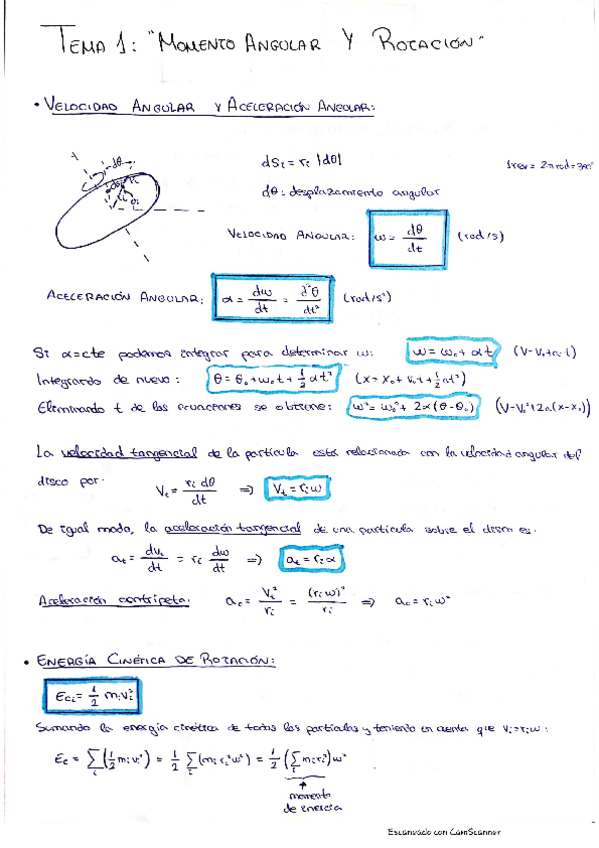 TEMA 1: "MOMENTO ANGULAR Y ROTACIÓN"
• VELOCIDAD ANGULAR Y ACELERACIÓN ANGULAR:
dθ
dSi = ri |dθ|
1rev = 2π rad = 360°
dθ: desplazamiento angular
VELOCIDAD ANGULAR: ω = dθ/dt (rad/s)
ACELERACIÓN ANGULAR: α = dω/dt = d²θ/dt² (rad/s²)
Si α=cte podemos integrar para determinar ω: ω = ω₀ + αt (V=V₀+a·t)
Integrando de nuevo: θ = θ₀ + ω₀t + ½ αt² (x = x₀ + V₀t + ½at²)
Eliminando t de las ecuaciones se obtiene: ω² = ω₀² + 2α(θ-θ₀) (V=V₀²+2a(x-x₀))
La velocidad tangencial de la partícula está relacionada con la velocidad angular del
disco por: Vt = ri dθ/dt => Vt = ri ω
De igual modo, la aceleración tangencial de una partícula sobre el disco es:
at = dvt/dt = ri dω/dt => at = ri α
Aceleración centrípeta: ac = Vt²/ri = (ri ω)²/ri => ac = ri ω²
• ENERGÍA CINÉTICA DE ROTACIÓN:
Eci = ½ mi vi²
Sumando la energía cinética de todas las partículas y teniendo en cuenta que Vi=ri ω:
Ec = Σi (½ mi vi²) = ½ Σi (mi ri² ω²) = ½ (Σi mi ri²) ω²
momento
de energía
Escaneado con CamScanner